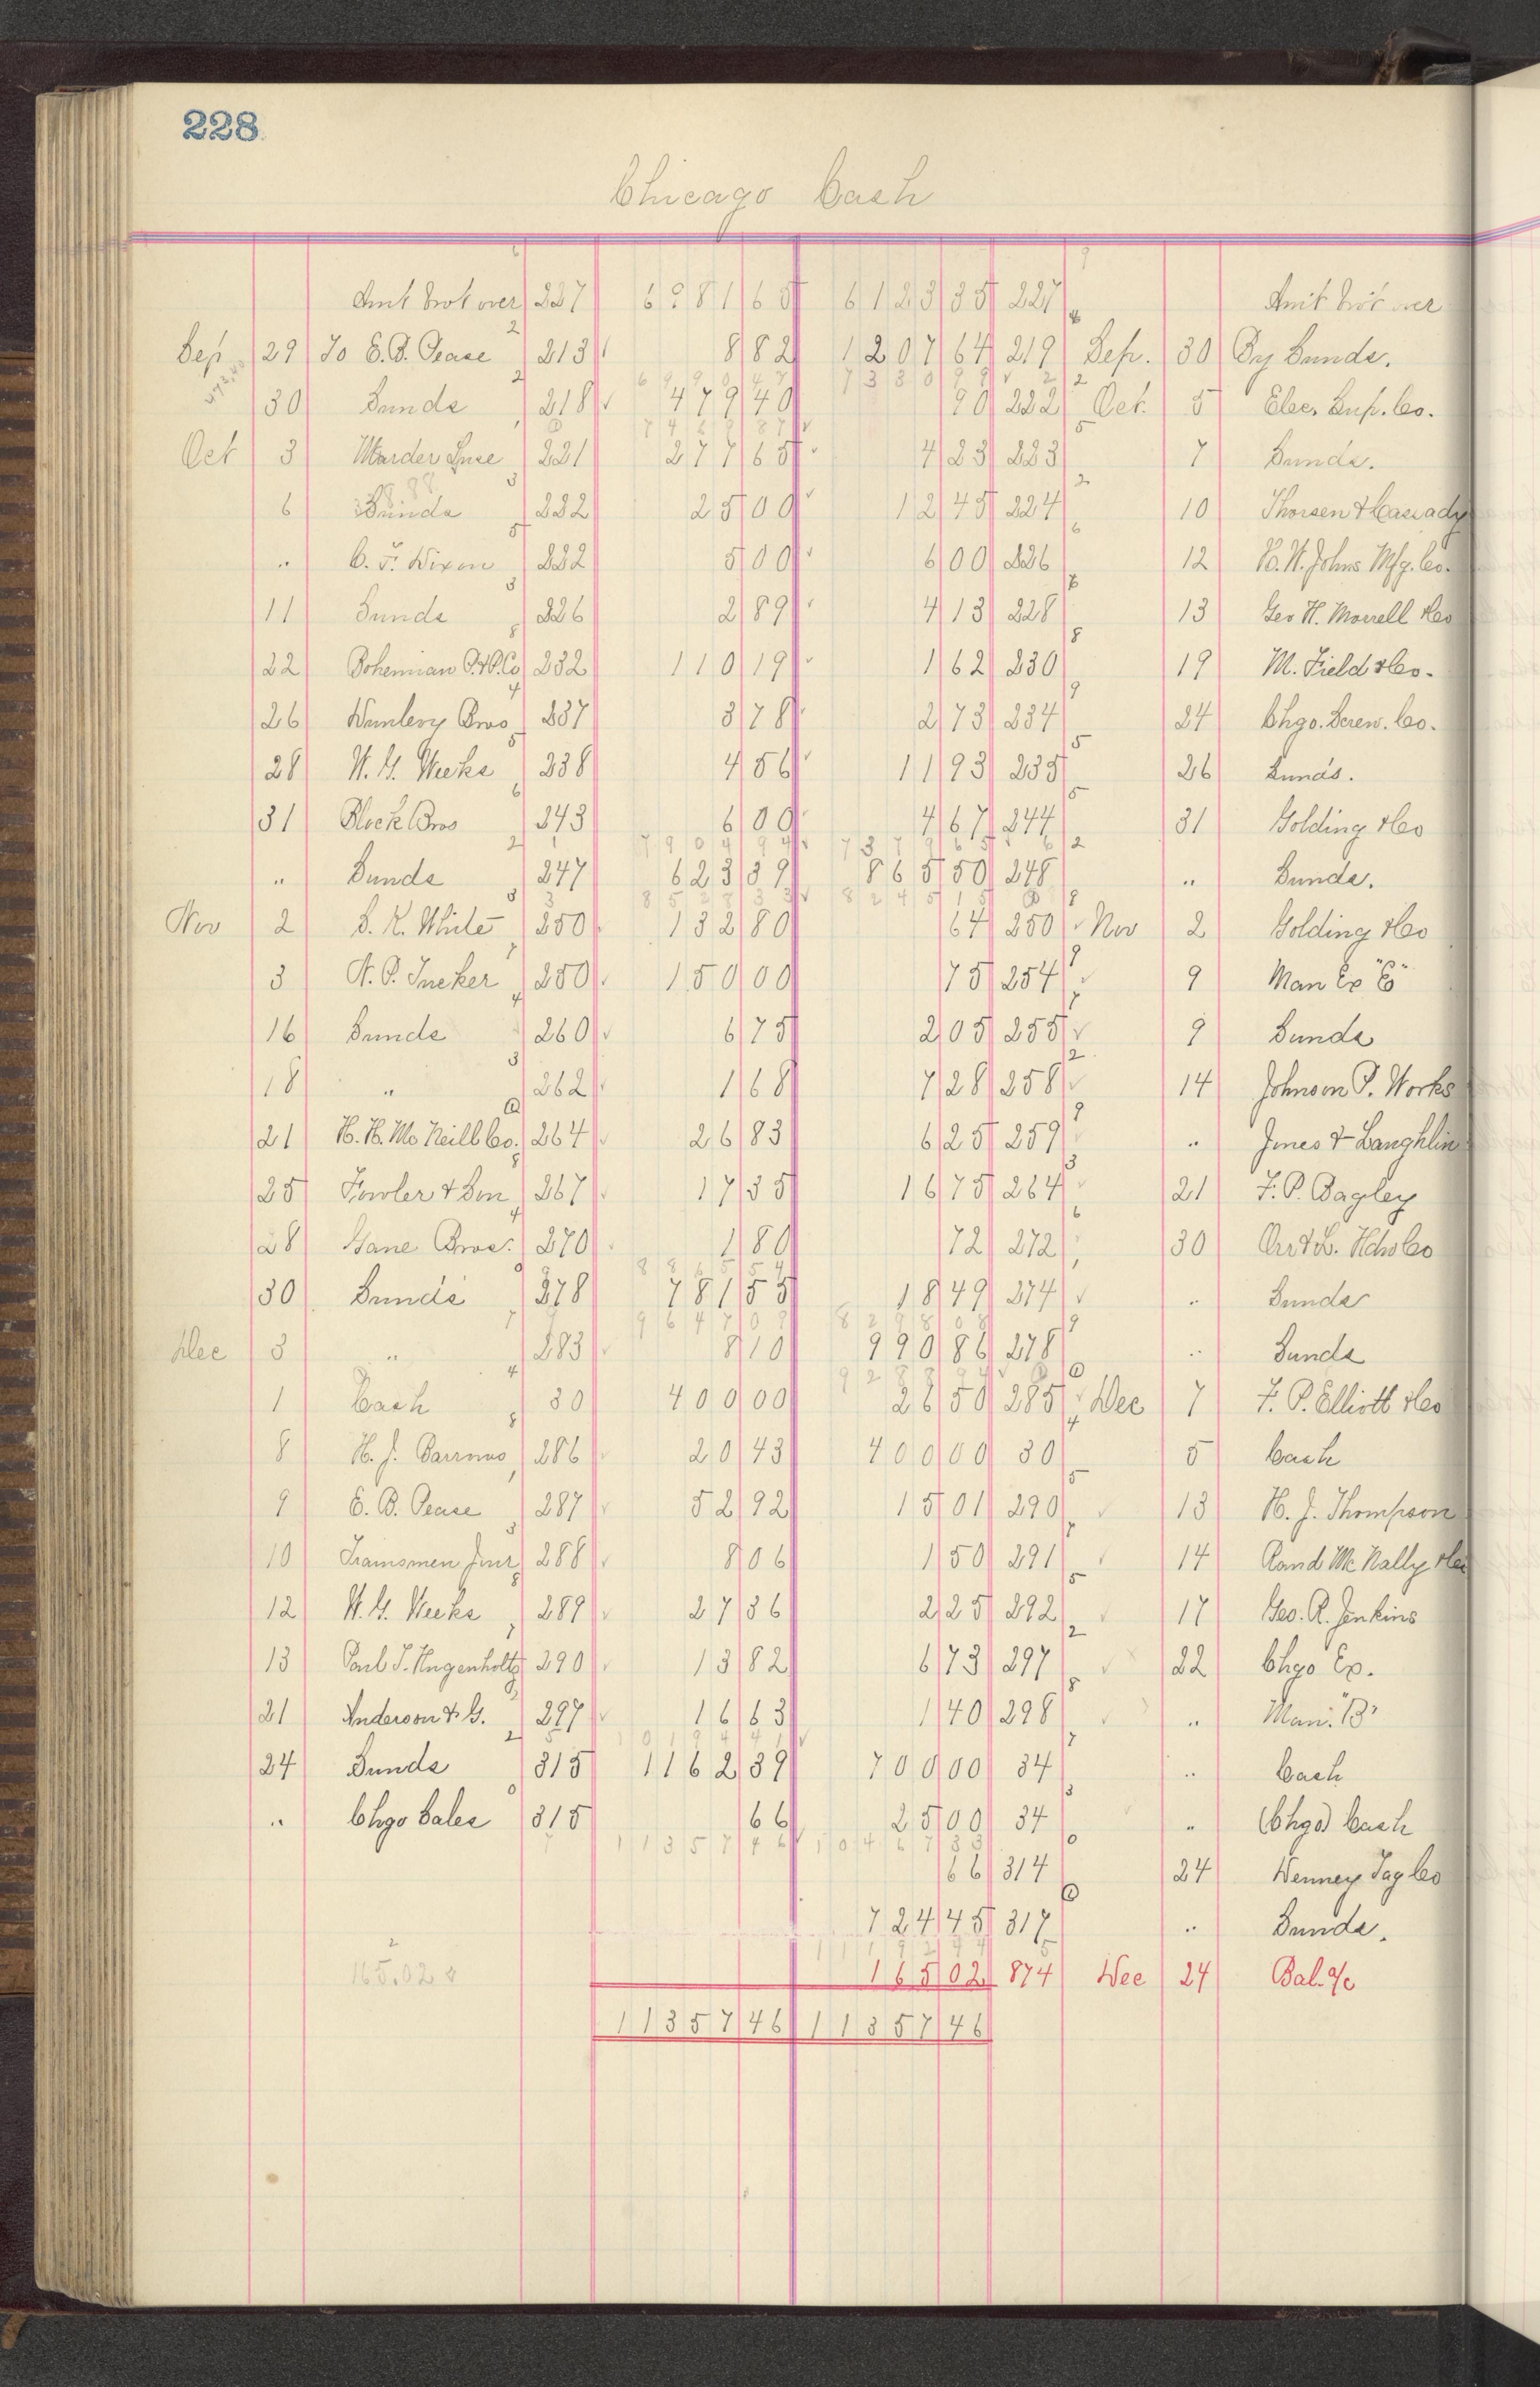 228
Chicago Cash
Amt brot over 227 6981 65 6123 35 227 Amt brot over
Sep 29 To E. B. Pease 213 8 82 1207 64 219 Sep. 30 By Sunds.
30 Sunds 218 479 40 90 222 Oct. 5 Elec. Sup. Co.
Oct 3 Marder Luse 221 277 65 4 23 223 7 Sunds.
6 Sunds 222 25 00 12 45 224 10 Thorsen & Cassady
" C. F. Dixon 222 5 00 6 00 226 12 H. W. Johns Mfg. Co.
11 Sunds 226 2 89 4 13 228 13 Geo H. Morrell & Co
22 Bohemian 232 110 19 1 62 230 19 M. Field & Co.
26 Bros 237 3 78 2 73 234 24 Chgo. Screw. Co.
28 W. G. Weeks 238 4 56 11 93 235 26 Sunds.
31 Block Bros 243 6 00 4 67 244 31 Golding & Co
" Sunds 247 623 39 865 50 248 " Sunds.
Nov 2 S. K. White 250 132 80 64 250 Nov 2 Golding & Co
3 250 150 00 75 254 9 Man Ex "C"
16 Sunds 260 6 75 2 05 255 9 Sunds
18 " 262 1 68 7 28 258 14 Johnson P. Works
21 H. H. McNeill Co. 264 26 83 6 25 259 " Jones & Laughlin
25 Fowler & Son 267 17 35 16 75 264 21 F. P. Bagley
28 Gane Bros. 270 1 80 72 272 30
30 Sunds 278 781 55 18 49 274 " Sunds
Dec 3 " 283 8 10 990 86 278 " Sunds
1 Cash 30 400 00 26 50 285 Dec 7 F. P. Elliott & Co
8 H. J. 286 20 43 400 00 30 5 Cash
9 E. B. Pease 287 52 92 15 01 290 13 H. J. Thompson
10 288 8 06 1 50 291 14 Rand McNally & Co
12 W. G. Weeks 289 27 36 2 25 292 17 Geo. R. Jenkins
13 Paul J. Hugenholtz 290 13 82 6 73 297 22 Chgo Ex.
21 Anderson & G. 297 16 63 1 40 298 " Man. "B"
24 Sunds 315 1162 39 700 00 34 " Cash
" Chgo Sales 315 66 25 00 34 " (Chgo) Cash
66 314 24 Denney Tag Co
724 45 317 " Sunds.
165.02 165 02 874 Dec 24 Bal. a/c
11357 46 11357 46